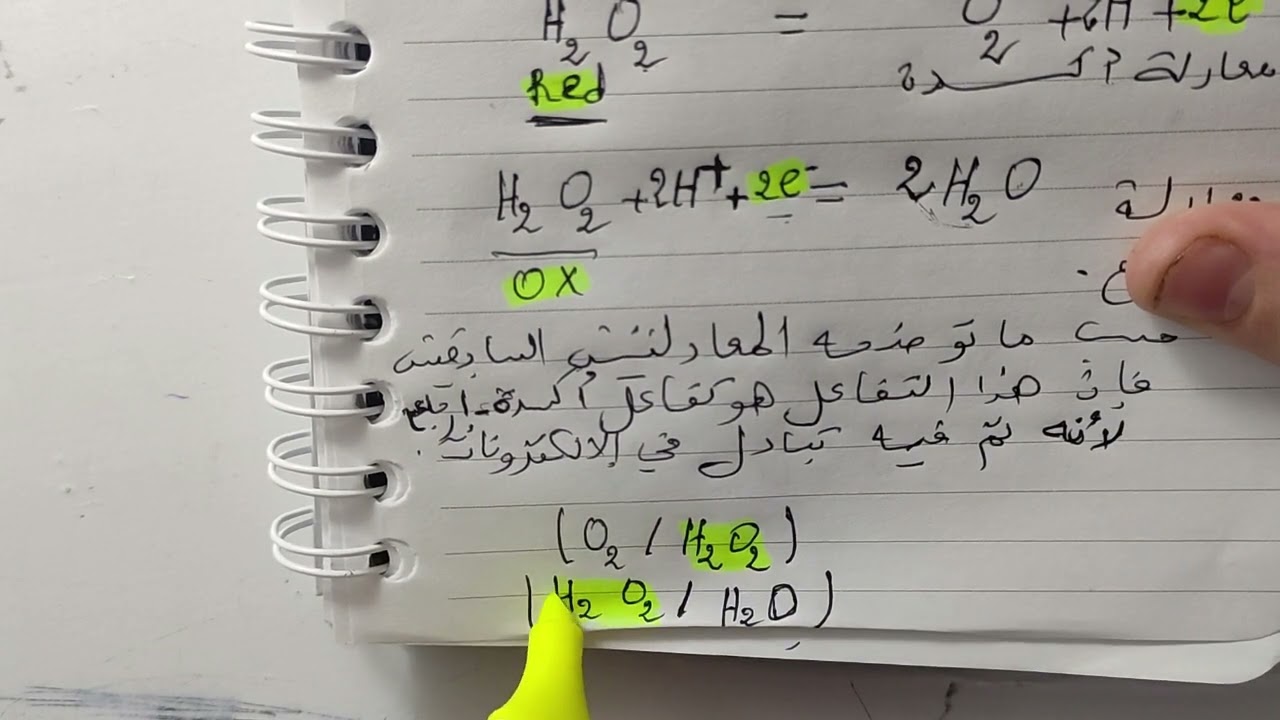 H₂O₂ = O₂ + 2H + 2e
معادلة أكسدة
Red
H₂O₂ + 2H⁺ + 2e⁻ = 2H₂O
OX
حسب ما توضحه المعادلتين السابقتين
فإن هذا التفاعل هو تفاعل أكسدة - إرجاع
لأنه تم فيه تبادل في الإلكترونات.
(O₂ / H₂O₂)
(H₂O₂ / H₂O)